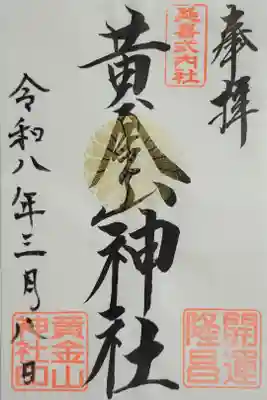 奉拝
延喜式内社
黄金山神社
開運
隆昌
令和八年三月八日
黄金山
神社印